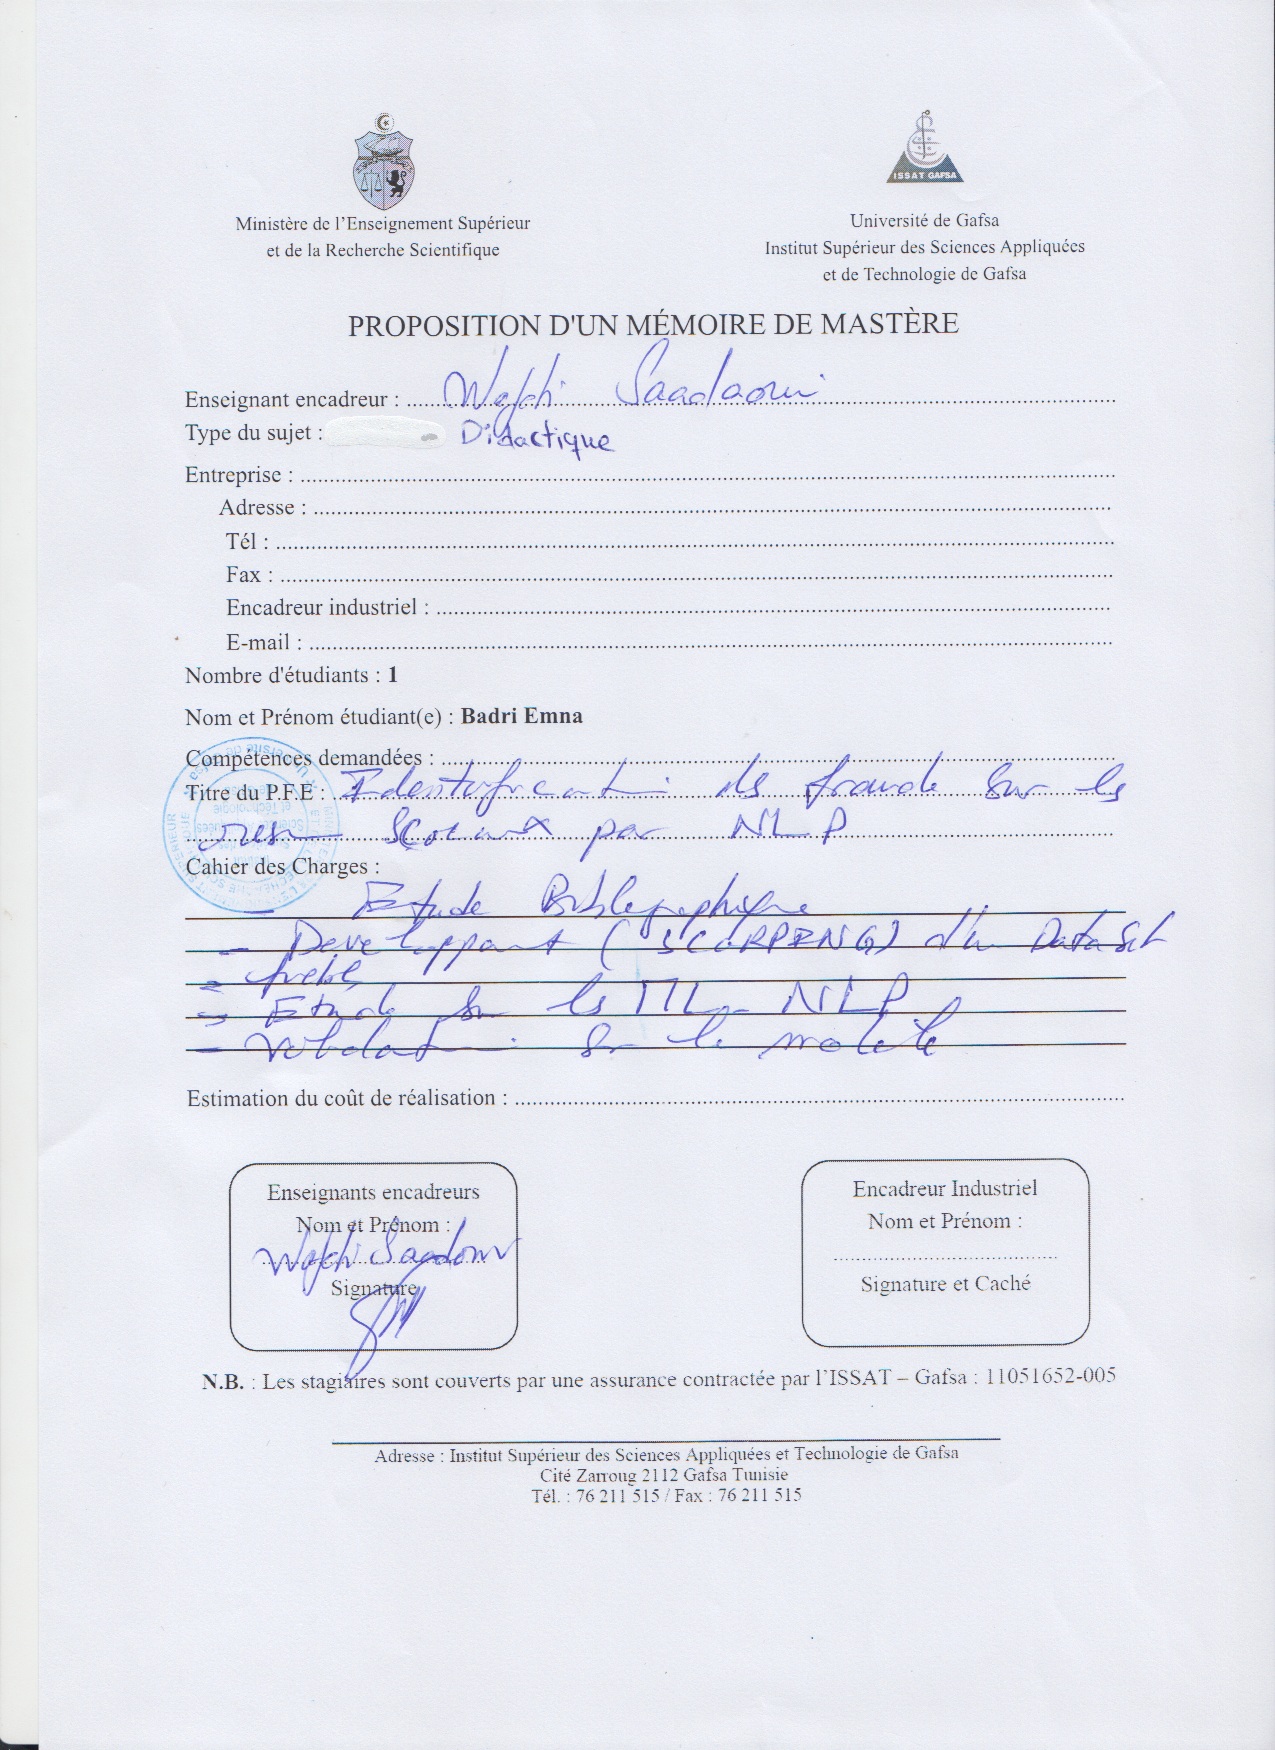 ISSAT GAFSA
Ministère de l'Enseignement Supérieur
et de la Recherche Scientifique
Université de Gafsa
Institut Supérieur des Sciences Appliquées
et de Technologie de Gafsa
PROPOSITION D'UN MÉMOIRE DE MASTÈRE
Enseignant encadreur : Wajdi Saadaoui
Type du sujet : Didactique
Entreprise :
Adresse :
Tél :
Fax :
Encadreur industriel :
E-mail :
Nombre d'étudiants : 1
Nom et Prénom étudiant(e) : Badri Emna
Compétences demandées :
Titre du P.F.E : Identification des fraude sur les
par NLP
Cahier des Charges :
- Etude Bibliographique
- (SCARPING) d'un DataSet
- Etude sur les ML - NLP
- Validation sur le modèle
Estimation du coût de réalisation :
Enseignants encadreurs
Nom et Prénom :
Wajdi Saadaoui
Signature
Encadreur Industriel
Nom et Prénom :
Signature et Caché
N.B. : Les stagiaires sont couverts par une assurance contractée par l'ISSAT – Gafsa : 11051652-005
Adresse : Institut Supérieur des Sciences Appliquées et Technologie de Gafsa
Cité Zarroug 2112 Gafsa Tunisie
Tél. : 76 211 515 / Fax : 76 211 515